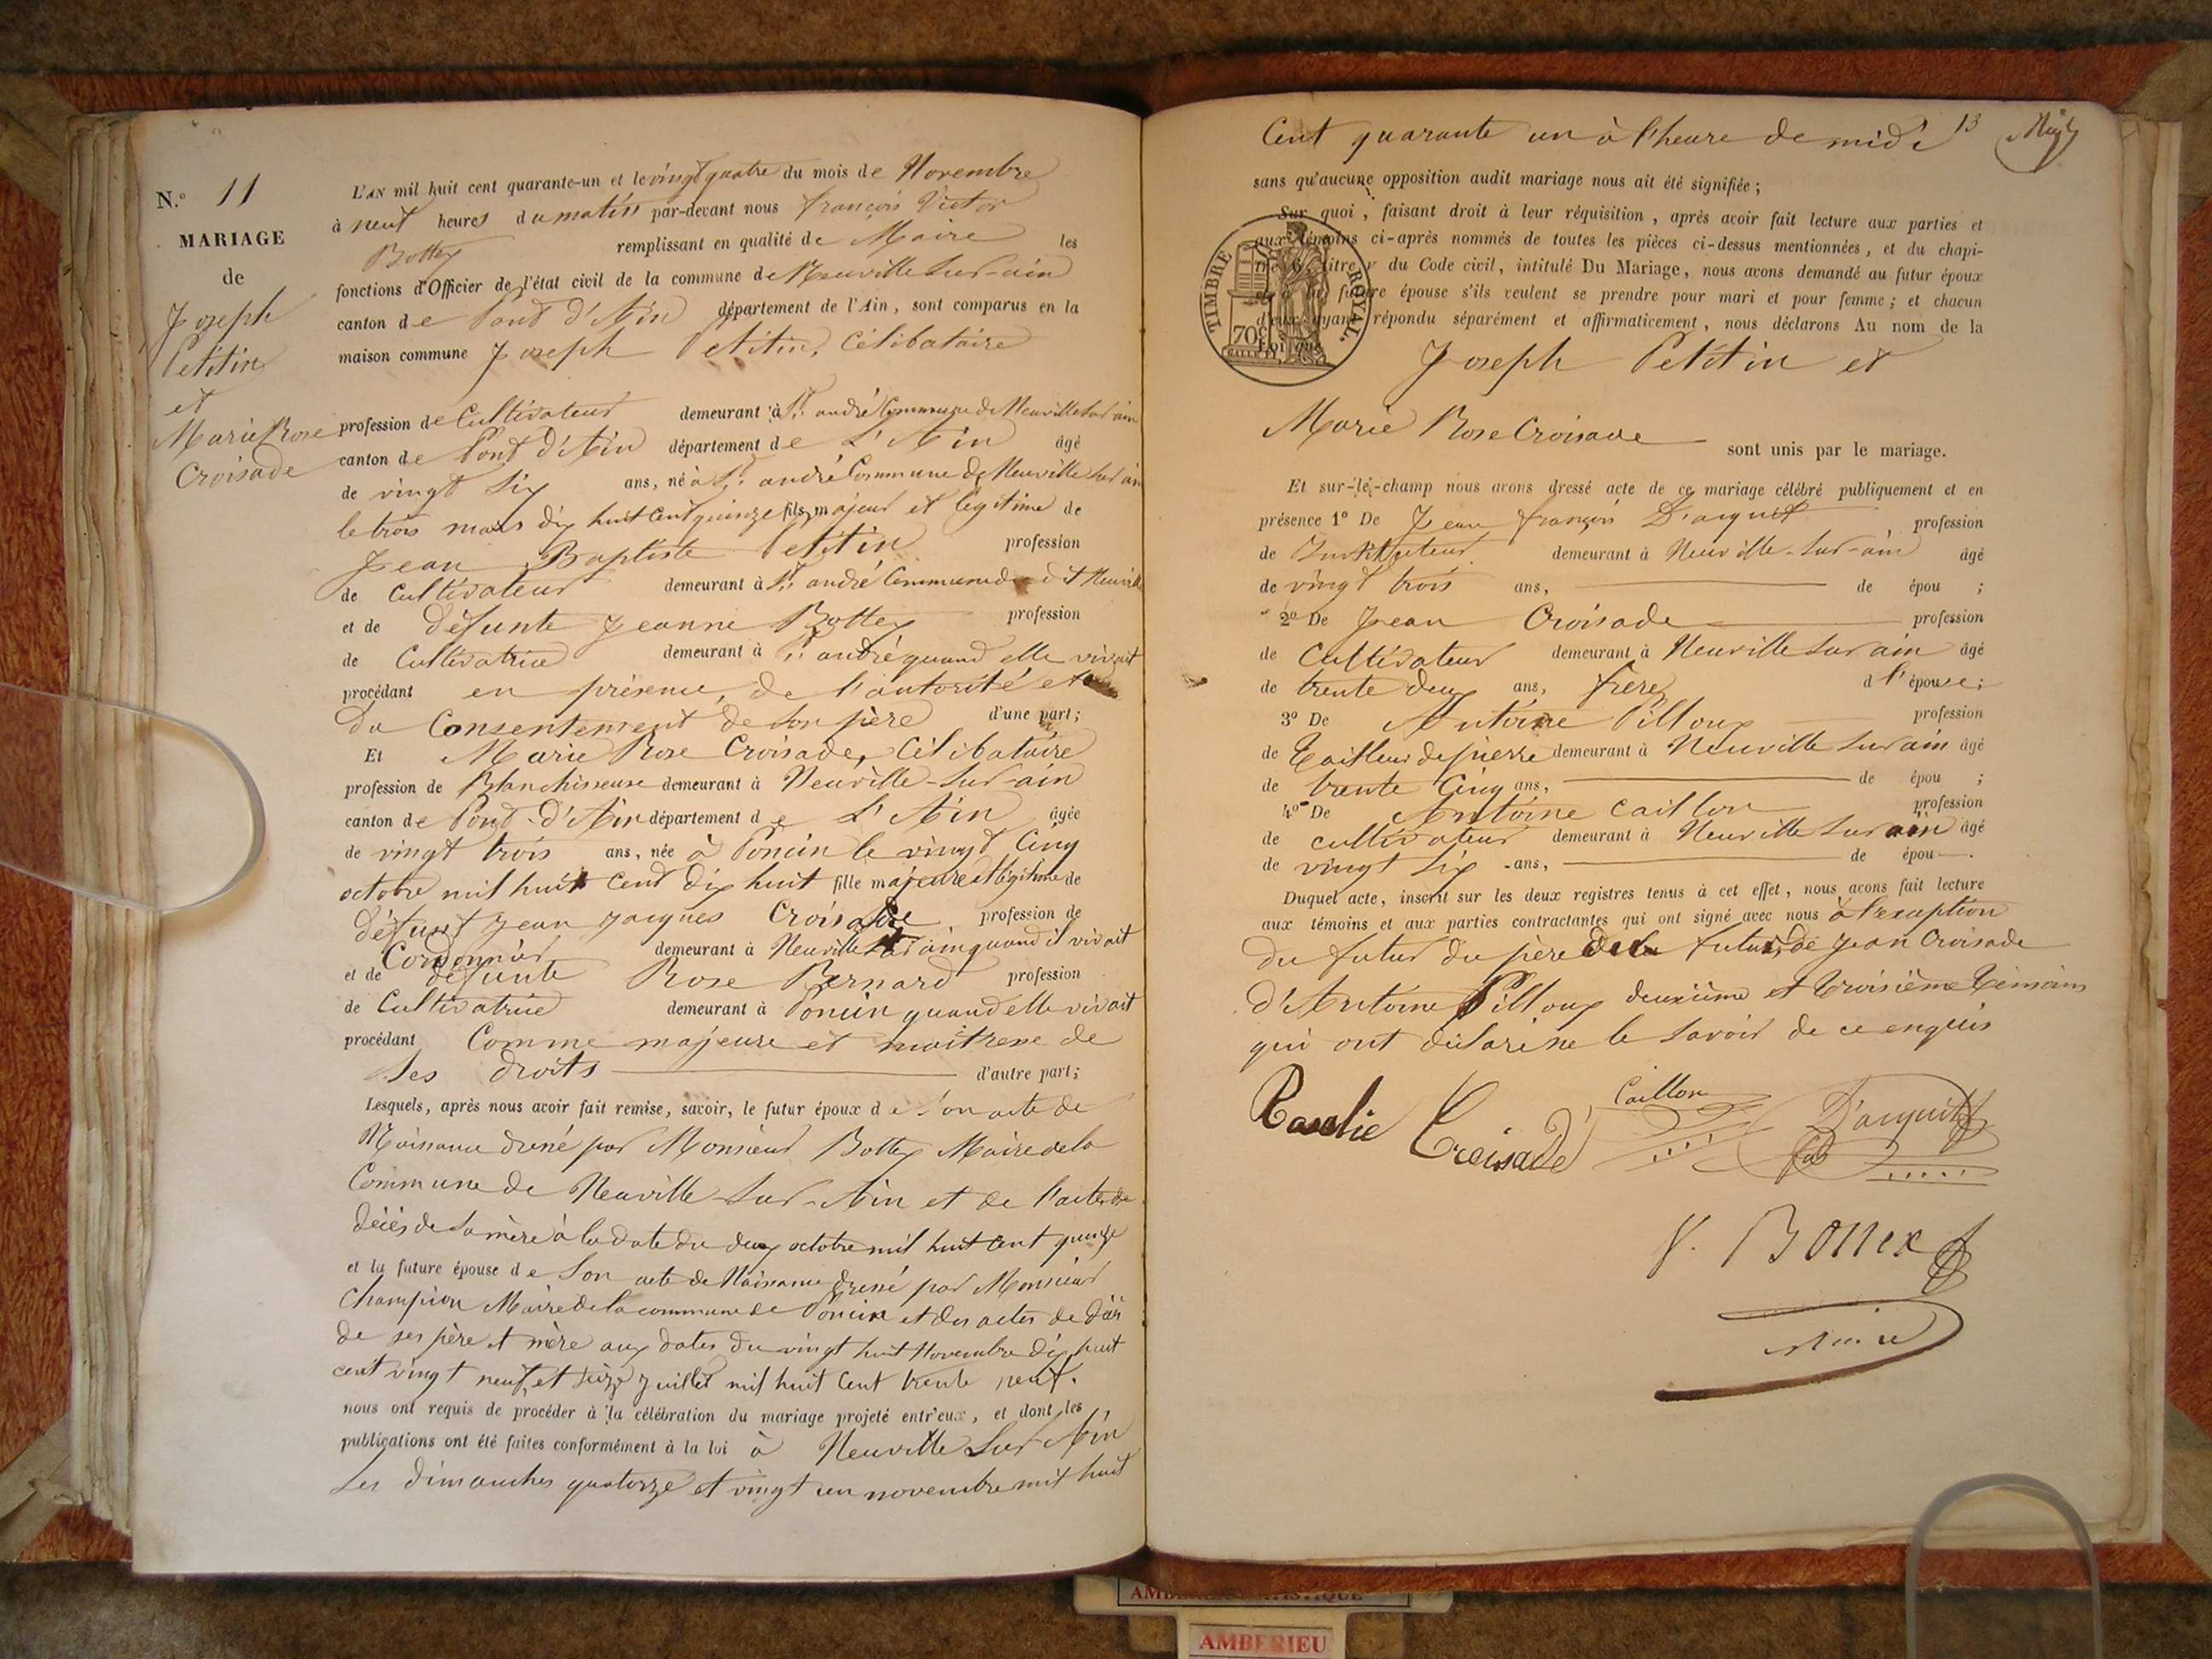 N.º 11
MARIAGE
de
Joseph
Petitin
et
Marie Rose
Croisade
L'AN mil huit cent quarante-un et le vingt quatre du mois de Novembre
à neuf heures du matin par-devant nous françois Victor
Bottex remplissant en qualité de Maire les
fonctions d'Officier de l'état civil de la commune de Neuville Sur-ain
canton de Pont d'Ain département de l'Ain, sont comparus en la
maison commune Joseph Petitin, Célibataire
profession de Cultivateur demeurant à St. andré Commune de Neuville Sur ain
canton de Pont d'Ain département de L'Ain âgé
de vingt Six ans, né à St. andré Commune de Neuville Sur ain
le trois mars dix huit Cent quinze fils majeur et légitime de
Jean Baptiste Petitin profession
de Cultivateur demeurant à St. andré Commune dudit Neuville
et de défunte Jeanne Bottex profession
de Cultivatrice demeurant à St. andré quand elle vivait
procédant en présence, de l'autorité et
du Consentement de Son père d'une part;
Et Marie Rose Croisade, Célibataire
profession de Blanchisseuse demeurant à Neuville-Sur-ain
canton de Pont-d'Ain département de L'Ain âgée
de vingt trois ans, née à Poncin le vingt Cinq
octobre mil huit Cent dix huit fille majeure et légitime de
défunt Jean Jacques Croisade profession de
Cordonnier demeurant à Neuville Sur ain quand il vivait
et de défunte Rose Bernard profession
de Cultivatrice demeurant à Poncin quand elle vivait
procédant Comme majeure et maitresse de
Ses droits d'autre part;
Lesquels, après nous avoir fait remise, savoir, le futur époux de Son acte de
Naissance dressé par Monsieur Bottex Maire de la
Commune de Neuville-Sur-Ain et de l'acte de
décès de Sa mère à la date du deux octobre mil huit Cent quinze
et la future épouse de Son acte de Naissance dressé par Monsieur
Champion Maire de la commune de Poncin et des actes de décès
de ses père et mère aux dates du vingt huit Novembre dix huit
cent vingt neuf, et seize Juillet mil huit Cent trente neuf.
nous ont requis de procéder à la célébration du mariage projeté entr'eux, et dont les
publications ont été faites conformément à la loi à Neuville Sur Ain
Les dimanches quatorze et vingt un novembre mil huit
Cent quarante un à l'heure de midi 13
sans qu'aucune opposition audit mariage nous ait été signifiée;
Sur quoi, faisant droit à leur réquisition, après avoir fait lecture aux parties et
aux témoins ci-après nommés de toutes les pièces ci-dessus mentionnées, et du chapi-
tre 6, titre V du Code civil, intitulé Du Mariage, nous avons demandé au futur époux
et à la future épouse s'ils veulent se prendre pour mari et pour femme; et chacun
d'eux ayant répondu séparément et affirmativement, nous déclarons Au nom de la
Loi que
TIMBRE ROYAL.
70c
Joseph Petitin et
Marie Rose Croisade sont unis par le mariage.
Et sur-le-champ nous avons dressé acte de ce mariage célébré publiquement et en
présence 1º De Jean françois D'arquit, profession
de Instituteur demeurant à Neuville-Sur-ain âgé
de vingt trois ans, de épou ;
2º De Jean Croisade profession
de Cultivateur demeurant à Neuville Sur ain âgé
de trente deux ans, frère d l'épouse;
3º De Antoine Pilloux profession
de Tailleur de pierre demeurant à Neuville Sur ain âgé
de trente Cinq ans, de épou ;
4º De Antoine Caillon profession
de cultivateur demeurant à Neuville Sur ain âgé
de vingt Six ans, de épou .
Duquel acte, inscrit sur les deux registres tenus à cet effet, nous avons fait lecture
aux témoins et aux parties contractantes qui ont signé avec nous à l'exception
du futur du père de la futur, de Jean Croisade
d'Antoine Pilloux deuxième et troisième témoins
qui ont déclaré ne le Savoir de ce enquis
Croisade
Caillon
D'arquit
V. Bottex
Maire
AMBERIEU